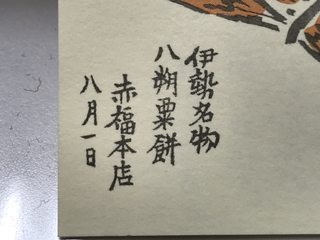 伊勢名物
八朔粟餅
赤福本店
八月一日